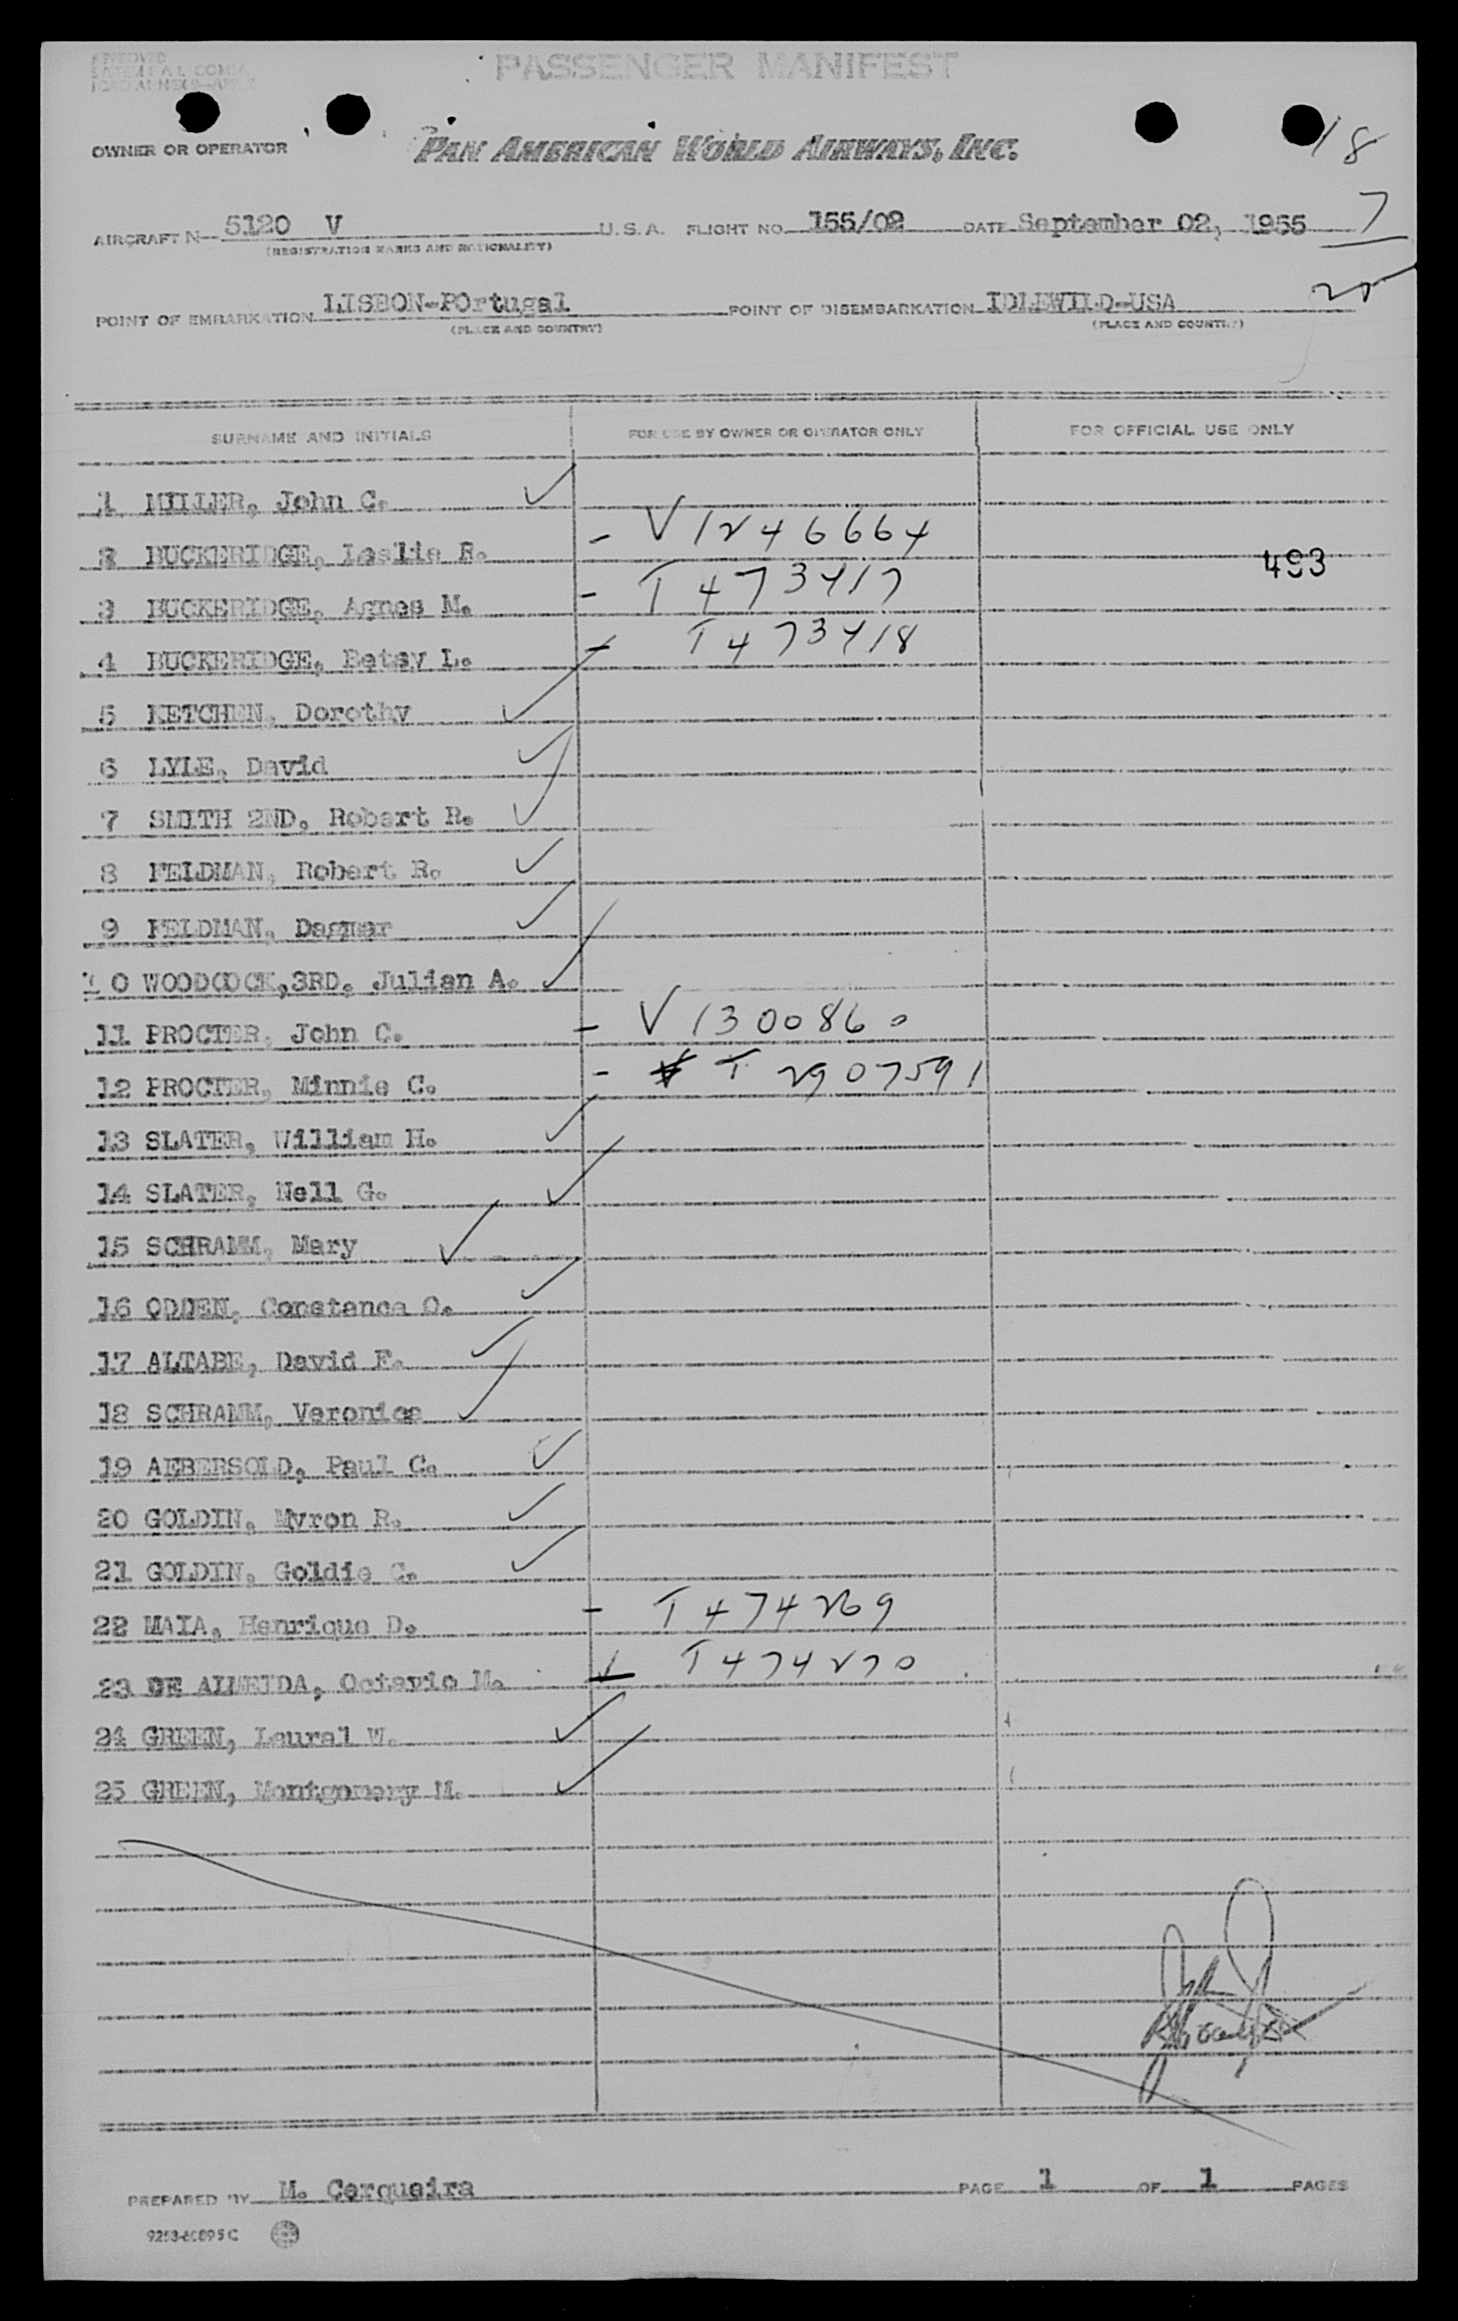 PASSENGER MANIFEST
OWNER OR OPERATOR PAN AMERICAN WORLD AIRWAYS, INC.
18
AIRCRAFT N 5120 V U.S.A. FLIGHT NO. 155/02 DATE September 02, 1955
7
(REGISTRATION MARKS AND NATIONALITY)
25
POINT OF EMBARKATION LISBON-POrtugal POINT OF DISEMBARKATION IDLEWILD-USA
(PLACE AND COUNTRY) (PLACE AND COUNTRY)
SURNAME AND INITIALS FOR USE BY OWNER OR OPERATOR ONLY FOR OFFICIAL USE ONLY
1 MILLER, John C. ✓
2 BUCKERIDGE, Leslie R. - V1246664
493
3 BUCKERIDGE, Agnes M. - T473417
4 BUCKERIDGE, Betsy L. - T473418
5 KETCHEN, Dorothy ✓
6 LYLE, David ✓
7 SMITH 2ND, Robert R. ✓
8 FELDMAN, Robert R. ✓
9 FELDMAN, Dagmar ✓
10 WOODCOCK,3RD, Julian A. ✓
11 PROCTER, John C. - V1300860
12 PROCTER, Minnie C. - T 2907591
13 SLATER, William H. ✓
14 SLATER, Nell G. ✓
15 SCHRAMM, Mary ✓
16 ODDEN, Constance O. ✓
17 ALTABE, David F. ✓
18 SCHRAMM, Veronica ✓
19 AEBERSOLD, Paul C. ✓
20 GOLDIN, Myron R. ✓
21 GOLDIN, Goldie C. ✓
22 MAIA, Henrique D. - T474269
23 DE ALMEIDA, Octavio M. T474270
24 GREEN, Laural W. ✓
25 GREEN, Montgomery M. ✓
PREPARED BY M. Cerqueira PAGE 1 OF 1 PAGES